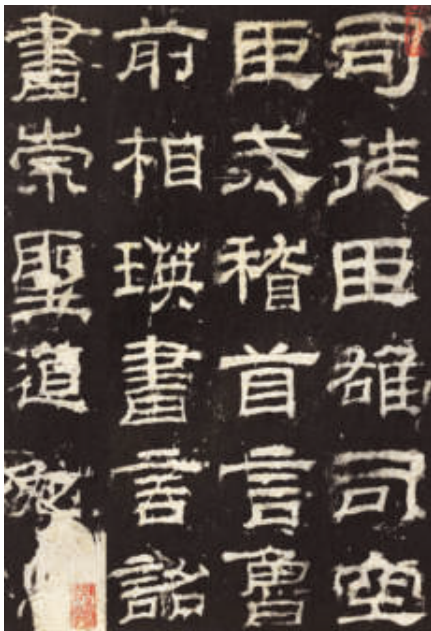 司徒臣雄司空
臣戒稽首言魯
前相瑛書言詔
書崇聖道